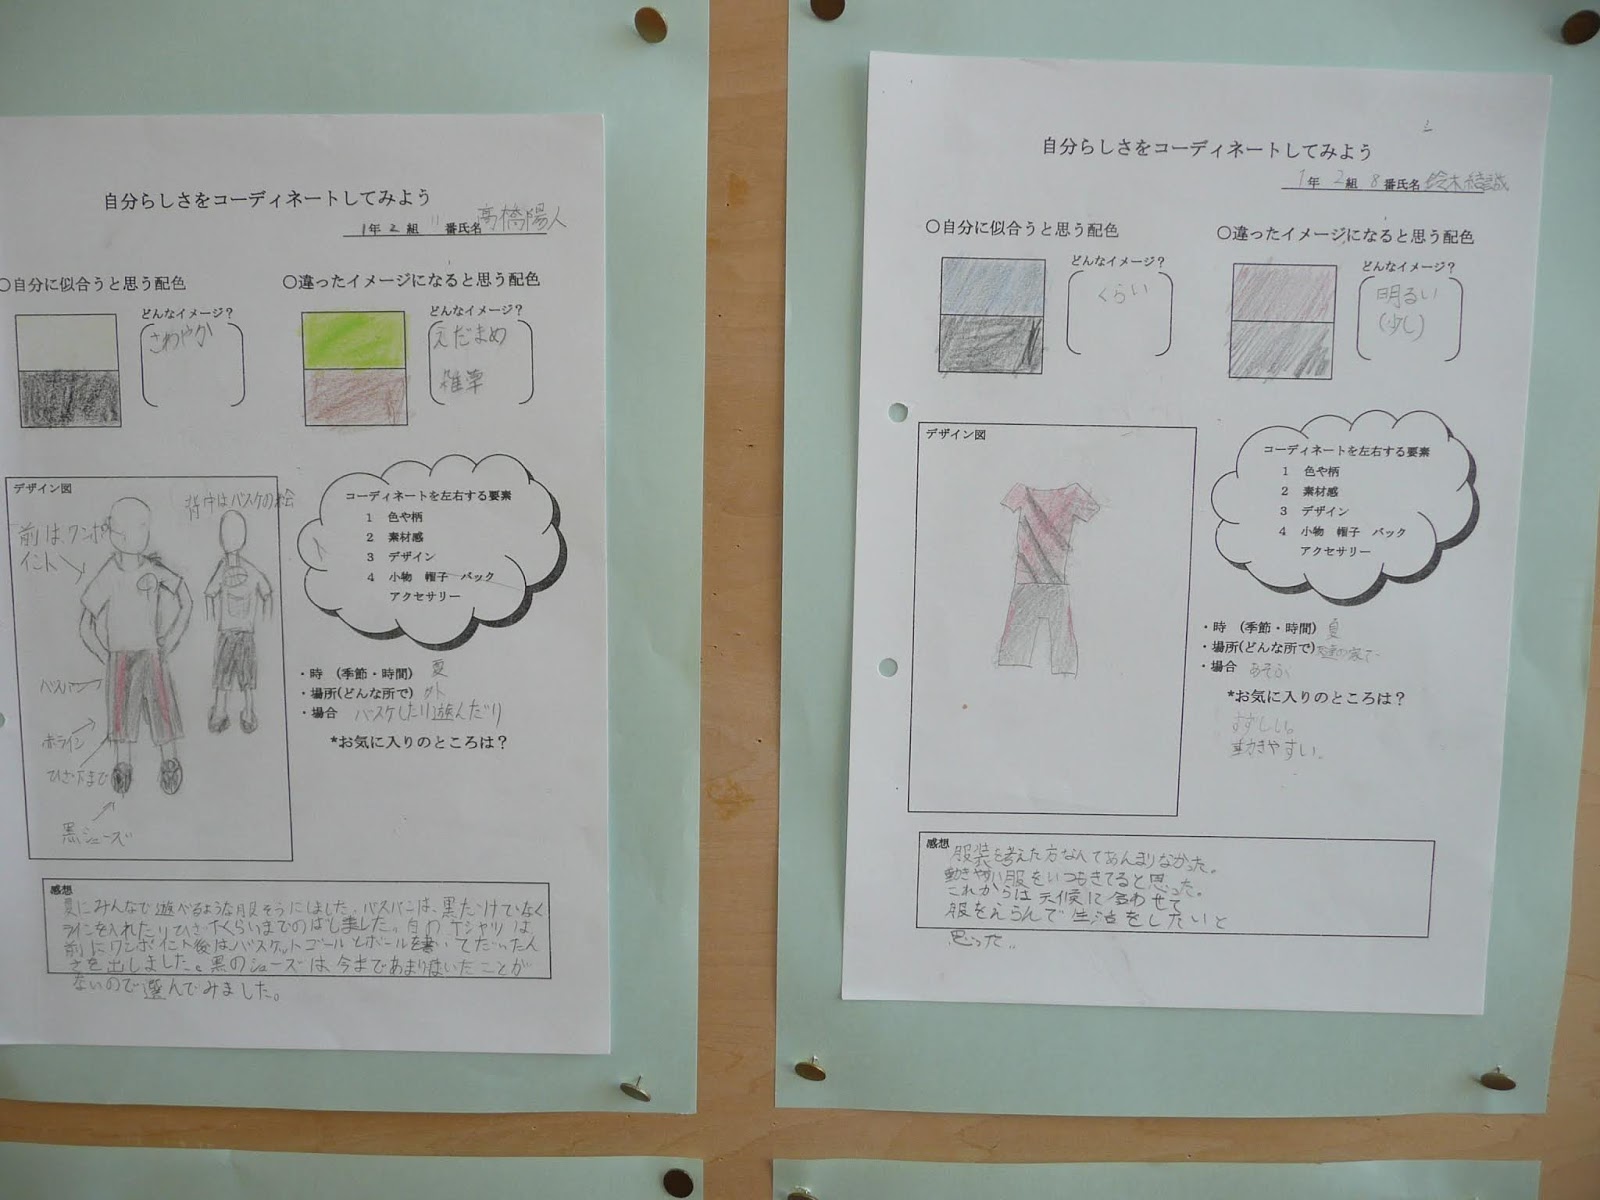 自分らしさをコーディネートしてみよう
1年 2組 11番氏名 高橋陽人
○自分に似合うと思う配色
どんなイメージ?
さわやか
○違ったイメージになると思う配色
どんなイメージ?
えだまめ
雑草
デザイン図
背中はバスケの絵
前はワンポ
イント
バスパン
赤ライン
ひざ下まで
黒シューズ
コーディネートを左右する要素
1 色や柄
2 素材感
3 デザイン
4 小物 帽子 バック
アクセサリー
・時 (季節・時間) 夏
・場所(どんな所で) 外
・場合 バスケしたり遊んだり
*お気に入りのところは?
感想
夏にみんなで遊べるような服そうにしました。バスパンは、黒だけでなく
ラインを入れたりひざ下くらいまでのばしました。白のTシャツは
前にワンポイント後はバスケットゴールとボールを書いてだいたん
さを出しました。黒のシューズは、今まであまりはいたことが
ないので選んでみました。
自分らしさをコーディネートしてみよう
1年 2組 8番氏名 鈴木結誠
○自分に似合うと思う配色
どんなイメージ?
くらい
○違ったイメージになると思う配色
どんなイメージ?
明るい
(少し)
デザイン図
コーディネートを左右する要素
1 色や柄
2 素材感
3 デザイン
4 小物 帽子 バック
アクセサリー
・時 (季節・時間) 夏
・場所(どんな所で) 友達の家で
・場合 あそぶ
*お気に入りのところは?
すずしい。
動きやすい。
感想
服装を考えた方なんてあんまりなかった。
動きやすい服をいつもきてると思った。
これからは天候に合わせて
服をえらんで生活をしたいと
思った。